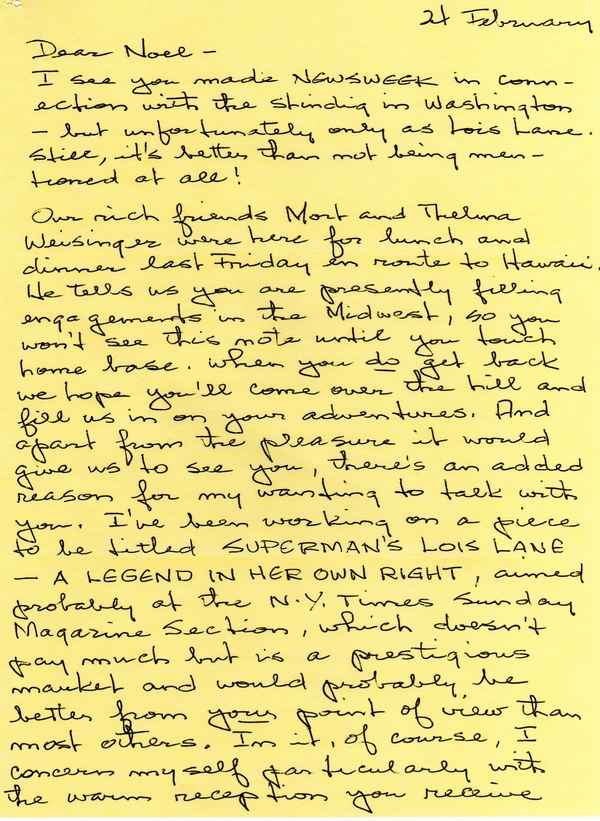 21 February
Dear Noel -
I see you made NEWSWEEK in conn-
ection with the shindig in Washington
- but unfortunately only as Lois Lane.
Still, it's better than not being men-
tioned at all!
Our rich friends Mort and Thelma
Weisinger were here for lunch and
dinner last Friday en route to Hawaii.
He tells us you are presently filling
engagements in the Midwest, so you
won't see this note until you touch
home base. When you do get back
we hope you'll come over the hill and
fill us in on your adventures. And
apart from the pleasure it would
give us to see you, there's an added
reason for my wanting to talk with
you. I've been working on a piece
to be titled SUPERMAN'S LOIS LANE
- A LEGEND IN HER OWN RIGHT, aimed
probably at the N.Y. Times Sunday
Magazine Section, which doesn't
pay much but is a prestigious
market and would probably be
better from your point of view than
most others. In it, of course, I
concern myself particularly with
the warm reception you receive